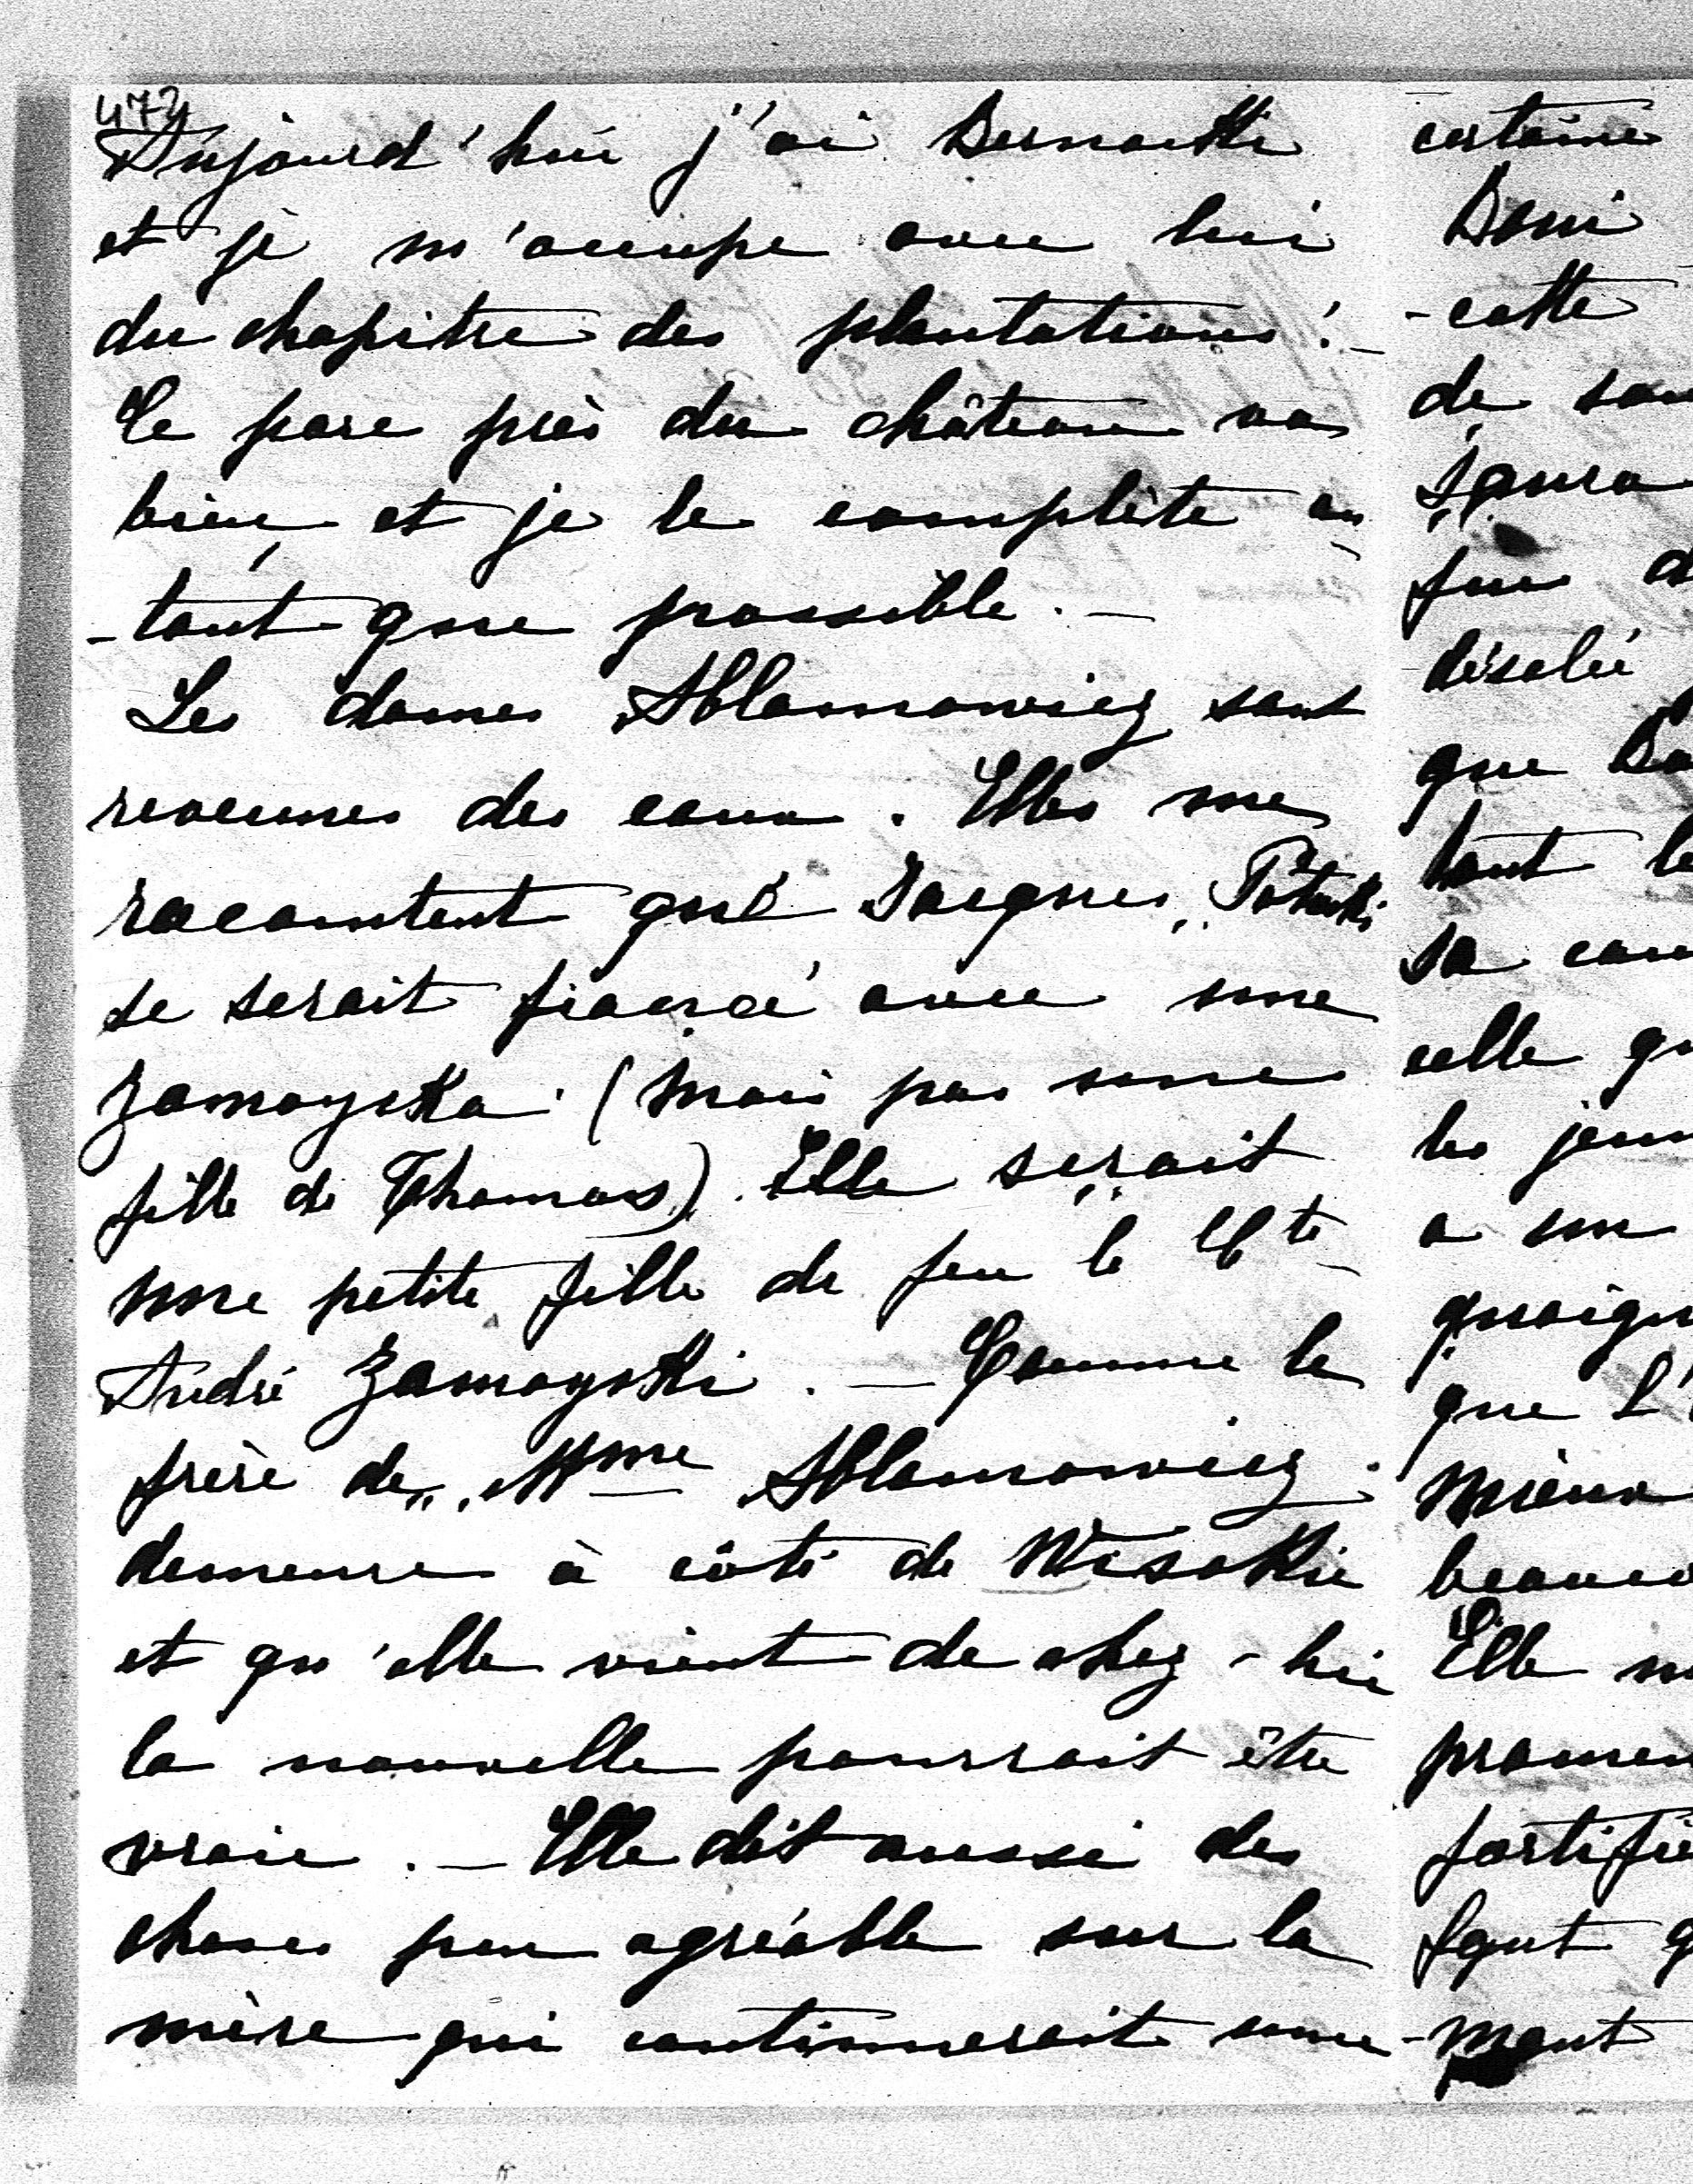 472
Aujourd'hui j'ai Bernatti
et je m'occupe avec lui
du chapitre des plantations! -
Le parc près du château va
bien et je le complète au
-tant que possible. -
Les dames Ablamowicz sont
revenues des eaux. Elles me
racontent que Jacques Potocki
se serait fiancé avec une
Zamoyska (mais pas une
fille de Thomas). Elle serait
une petite fille de feu le Cte
André Zamoyski. - Comme le
frère de Mme Ablamowicz
demeure à côté de Wisokie
et qu'elle vient de chez-lui
la nouvelle pourrait être
vraie. - Elle dit aussi des
choses peu agréable sur la
mère qui continuerait une
certaine
-cette
de
désolé
que
tout le
sa
celle qu
les jeun
a un
quoiqu
que L'
mieux
beauco
Elle
promen
fortifie
-ment